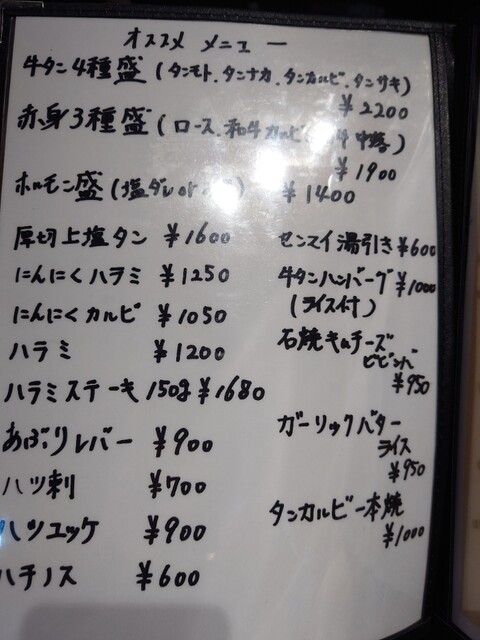 オススメ メニュー
牛タン4種盛(タンモト.タンナカ.タンカルビ.タンサキ)
¥2200
赤身3種盛(ロース.和牛カルビ 中落)
¥1900
ホルモン盛(塩ダレor ) ¥1400
厚切上塩タン ¥1600
にんにくハラミ ¥1250
にんにくカルビ ¥1050
ハラミ ¥1200
ハラミステーキ 150g ¥1680
あぶりレバー ¥900
ハツ刺 ¥700
ハツユッケ ¥900
ハチノス ¥600
センマイ湯引き ¥600
牛タンハンバーグ ¥1000
(ライス付)
石焼キムチーズ
ビビンバ
¥950
ガーリックバター
ライス
¥950
タンカルビ一本焼
¥1000